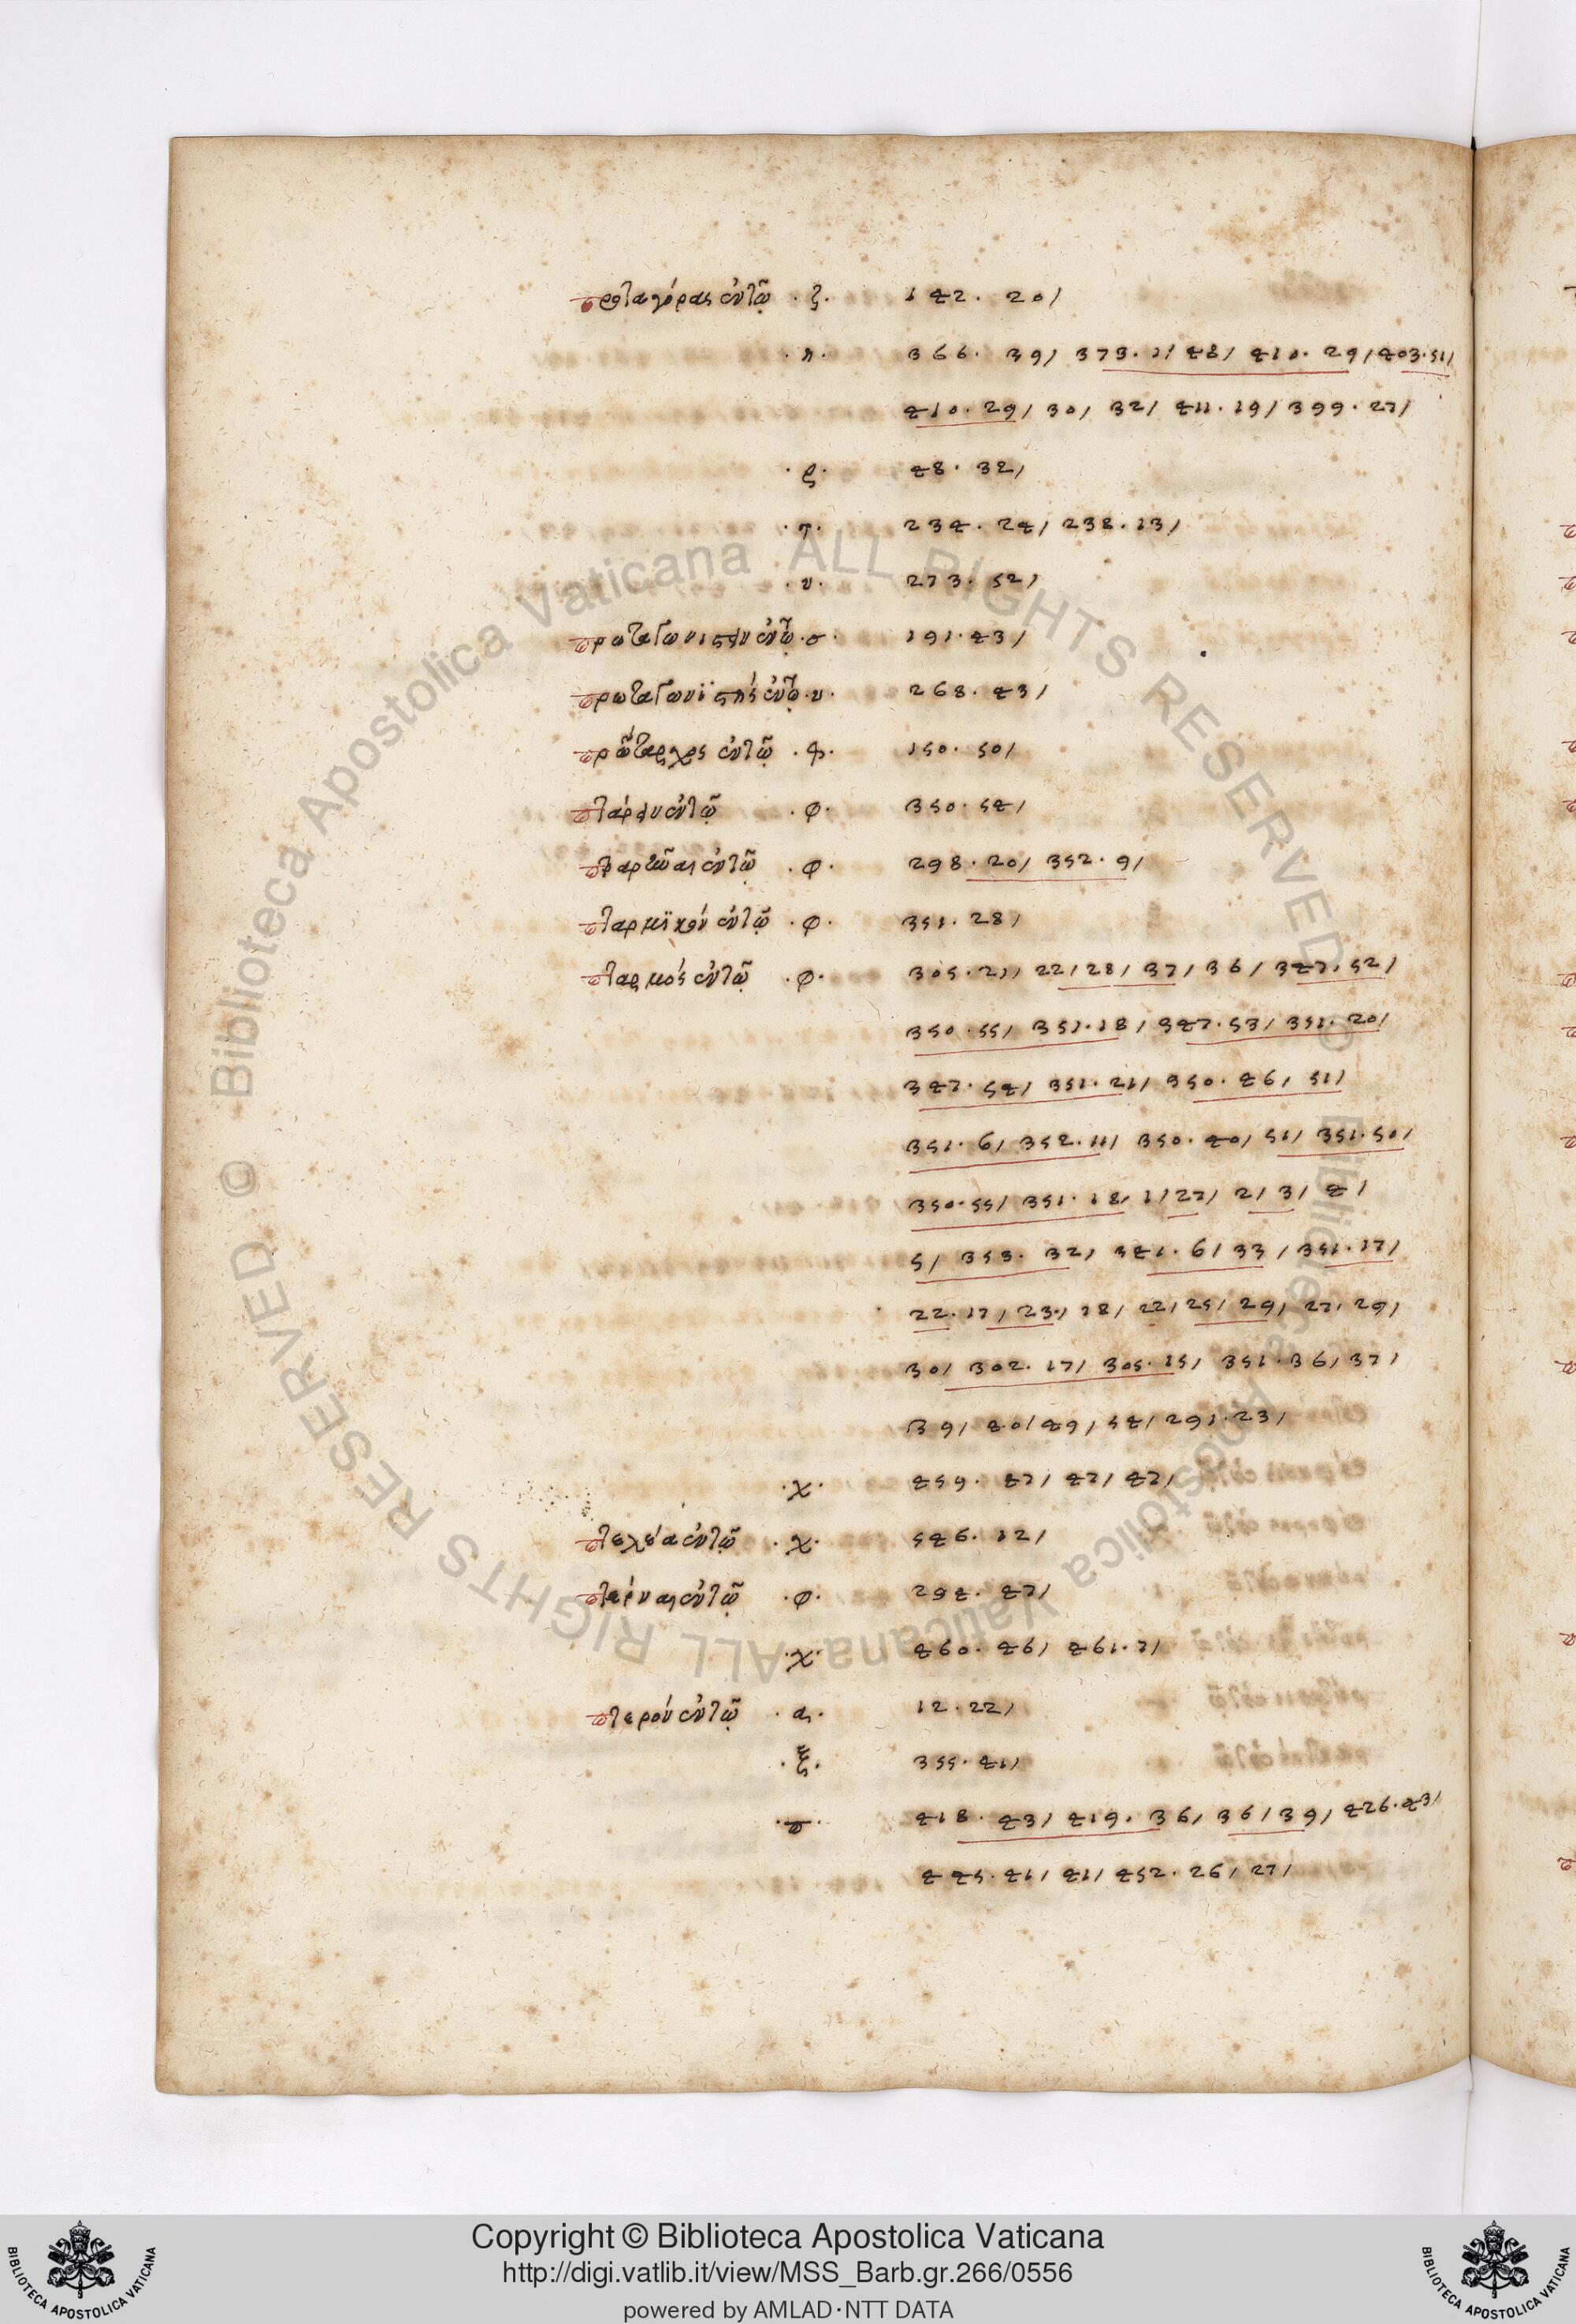 πρωταγόρας ἐν τῷ · ζ · 142 · 20/
· η · 366 · 39/ 373 · 1/ 48/ 410 · 29/ 403 · 51/
410 · 29/ 30/ 32/ 411 · 19/ 399 · 27/
· ς · 48 · 32/
· τ · 234 · 24/ 238 · 13/
· υ · 273 · 52/
ἐν τῷ · σ · 191 · 43/
πρωταγωνϊστὴς ἐν τῷ · υ · 268 · 43/
πρώταρχος ἐν τῷ · 150 · 50/
ἐν τῷ · φ · 350 · 54/
ἐν τῷ · φ · 298 · 20/ 352 · 9/
πταρμϊκὸν ἐν τῷ · φ · 351 · 28/
πταρμὸς ἐν τῷ · φ · 305 · 21/ 22/ 28/ 37/ 36/ 347 · 52/
350 · 55/ 351 · 18/ 347 · 53/ 351 · 20/
347 · 54/ 351 · 21/ 350 · 46/ 51/
351 · 6/ 352 · 11/ 350 · 40/ 51/ 351 · 50/
350 · 55/ 351 · 18/ 1/ 27/ 2/ 3/ 4/
5/ 353 · 32/ 341 · 6/ 33/ 351 · 17/
22 · 17/ 23 · / 18/ 22/ 25/ 29/ 27/ 29/
30/ 302 · 17/ 305 · 15/ 351 · 36/ 37/
39/ 40/ 49/ 54/ 291 · 23/
· χ · 459 · 47/ 47/ 47/
πτελέα ἐν τῷ · χ · 546 · 12/
πτέρνα ἐν τῷ · φ · 294 · 47/
· χ · 460 · 46/ 461 · 7/
πτερὸν ἐν τῷ · α · 12 · 22/
· ξ · 355 · 41/
· π · 418 · 43/ 419 · 36/ 36/ 39/ 426 · 43/
445 · 41/ 41/ 452 · 26/ 27/
© Biblioteca Apostolica Vaticana ALL RIGHTS RESERVED
© Biblioteca Apostolica Vaticana ALL RIGHTS RESERVED
Copyright © Biblioteca Apostolica Vaticana
http://digi.vatlib.it/view/MSS_Barb.gr.266/0556
powered by AMLAD·NTT DATA
BIBLIOTECA APOSTOLICA VATICANA
BIBLIOTECA APOSTOLICA VATICANA